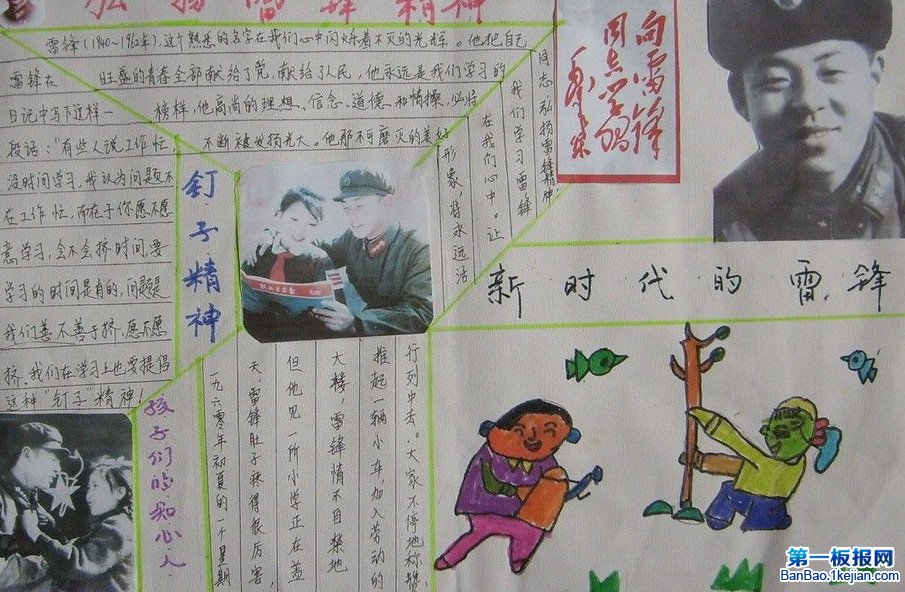 弘扬雷锋精神
雷锋(1940~1962年),这个熟悉的名字在我们心中闪烁着不灭的光辉。他把自己
旺盛的青春全部献给了党,献给了人民,他永远是我们学习的
榜样,他高尚的理想、信念、道德和情操,必将
不断被发扬光大。他那不可磨灭的美好
形象将永远活
在我们心中。让
我们学习雷锋
同志弘扬雷锋精神
雷锋在
日记中写下这样一
段话:“有些人说工作忙,
没时间学习,我认为问题不
在工作忙,而在于你愿不愿
意学习,会不会挤时间,要
学习的时间是有的,问题是
我们善不善于挤,愿不愿
挤,我们在学习上也要提倡
这种“钉子”精神!
钉子精神
向雷锋
同志学习
毛泽东
新时代的雷锋
孩子们的知心人
一九六零年初夏的一个星期
天,雷锋肚子疼得很厉害,
但他见一所小学正在盖
大楼,雷锋情不自禁地
推起一辆小车,加入劳动的
行列中去。大家不停地称赞,
第一板报网
BanBao.1kejian.com